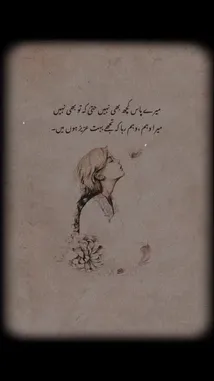 میرے پاس کچھ بھی نہیں حتیٰ کہ تو بھی نہیں
میرا وہم ، وہم رہا کہ تجھے بہت عزیز ہوں میں۔